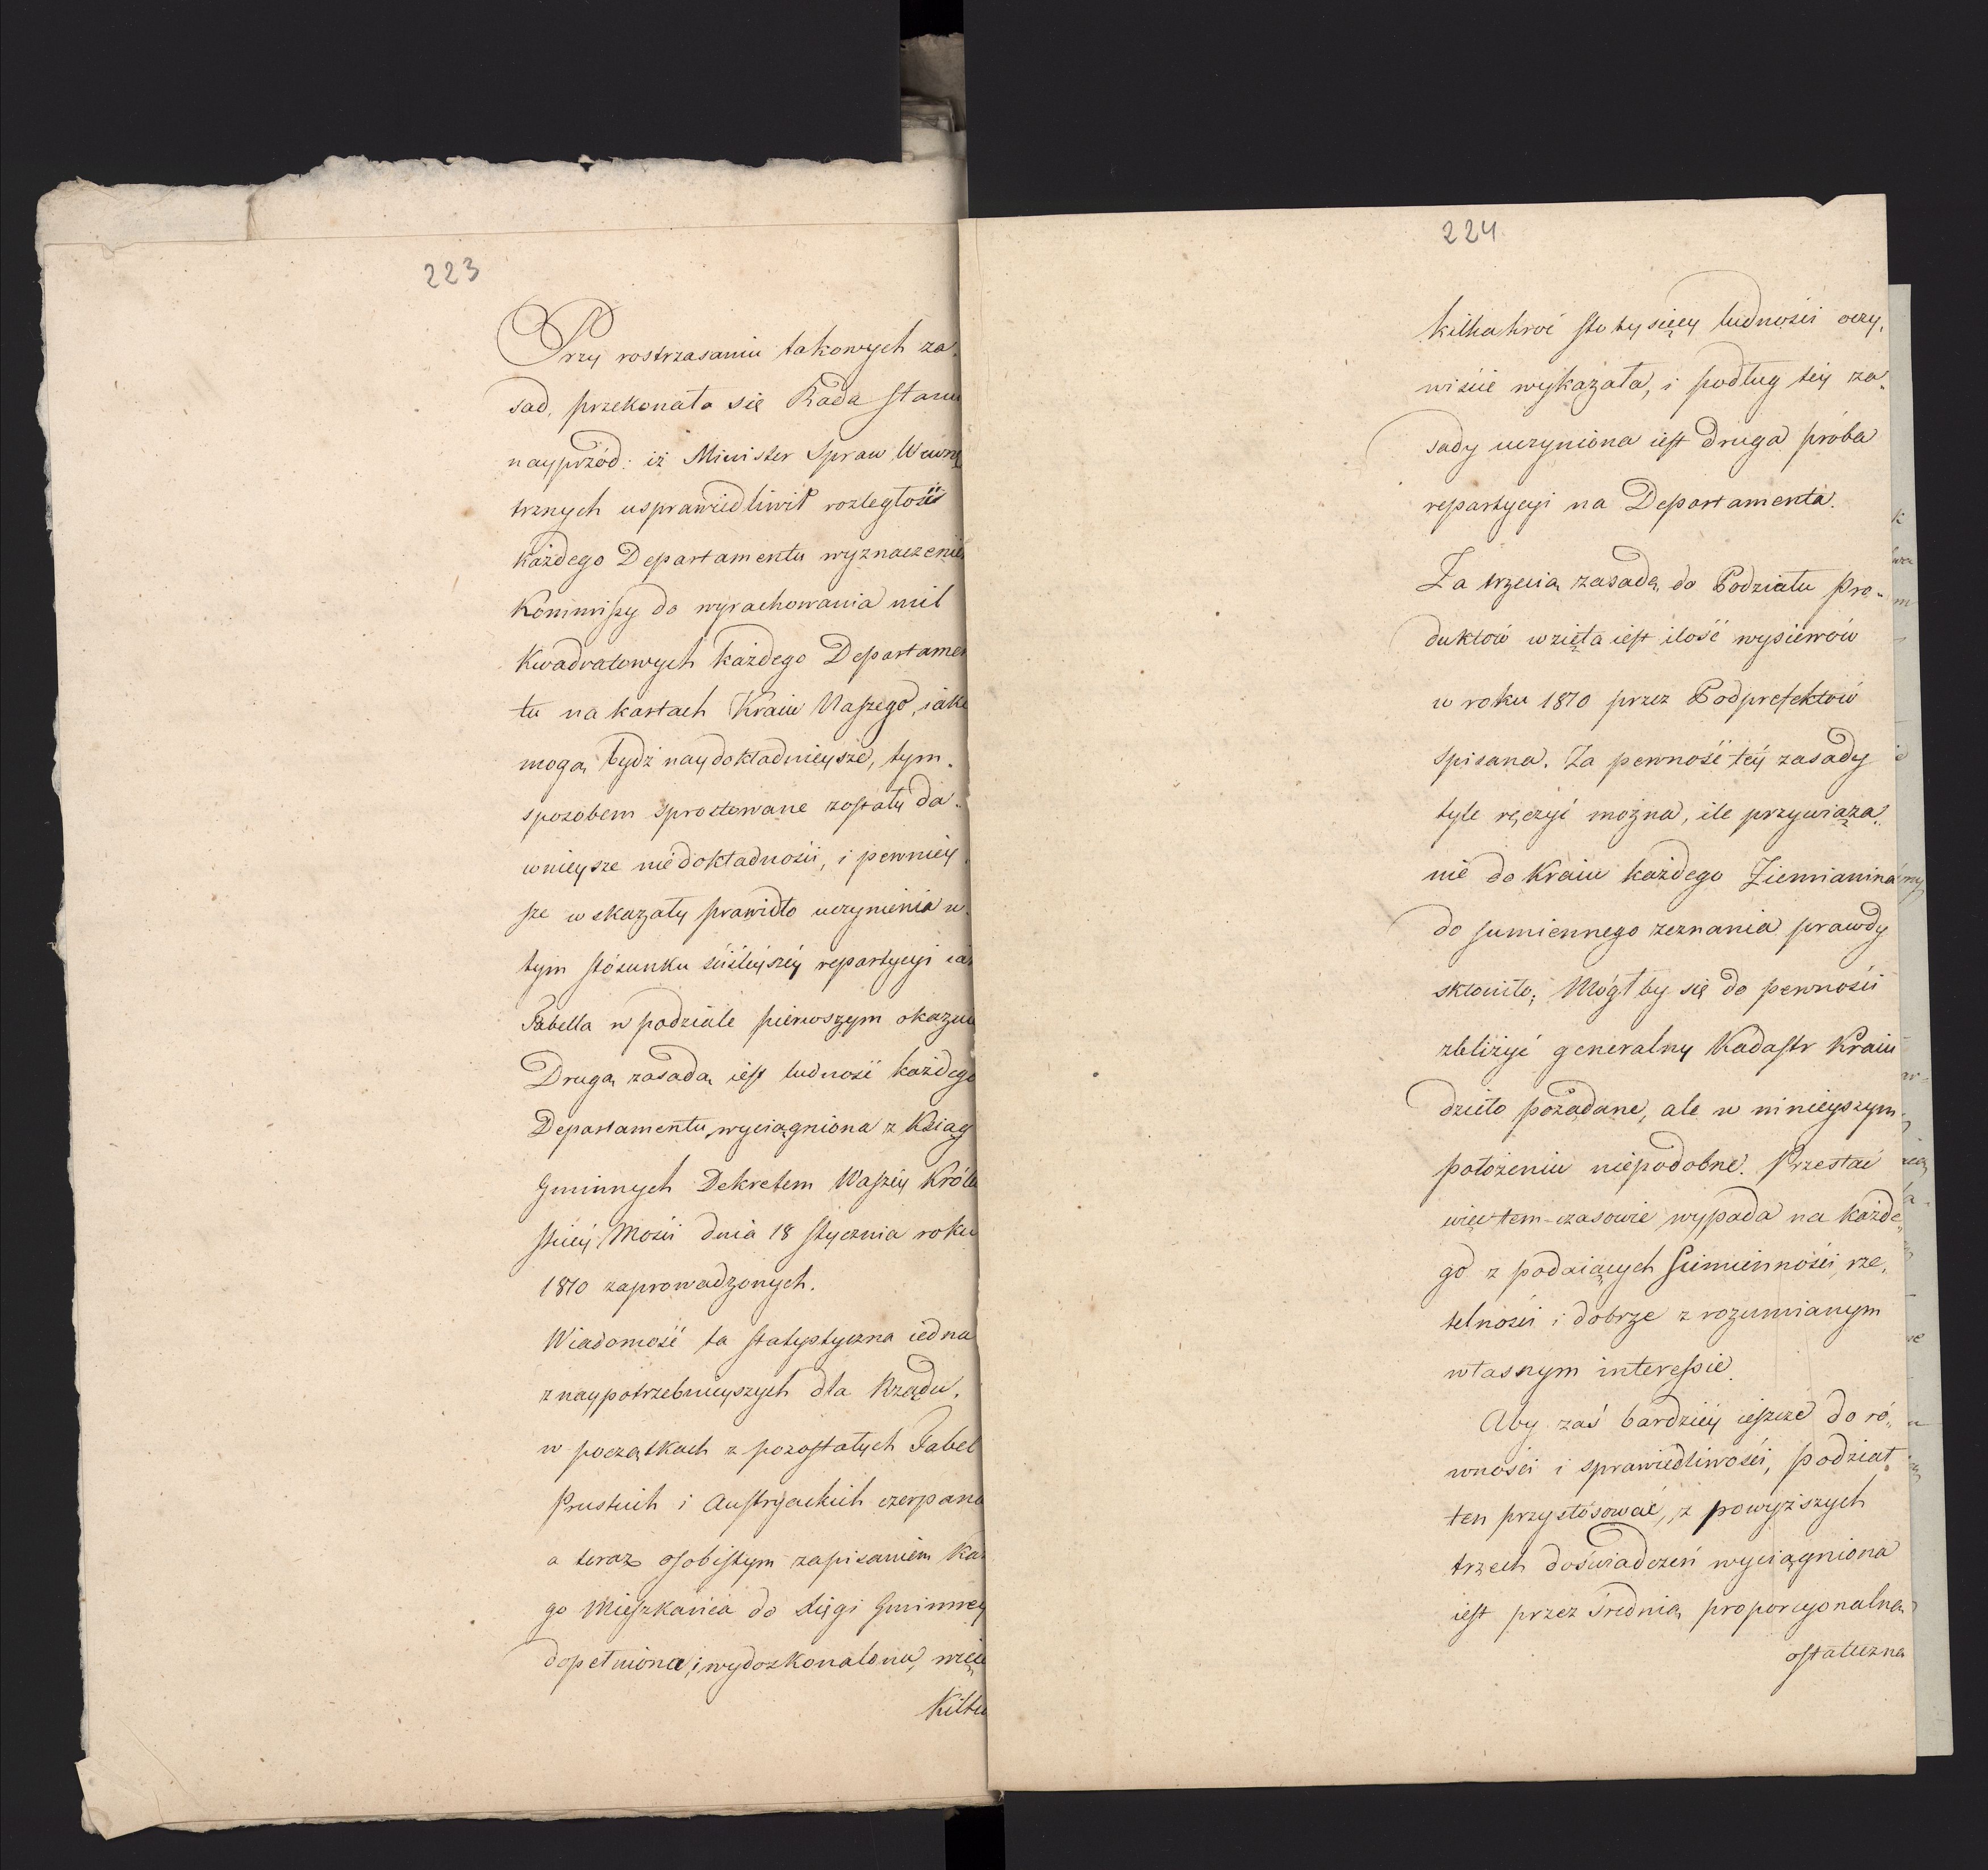 223
Przy rostrzasaniu takowych za-
sad, przekonała się Rada Stanu
nayprzód: iż Minister Spraw Wewnę
trznych usprawiedliwił rozległość
każdego Departamentu wyznaczeniem
Kommissyi do wyrachowania mil
Kwadratowych każdego Departamen
tu na kartach Kraiu Naszego, iakie
mogą bydź naydokładnieysze, tym-
sposobem sprostowane zostały da-
wnieysze niedokładności, i pewniey-
sze wskazały prawidło uczynienia w-
tym stósunku ściśleyszey repartycyi iak
Tabella w podziale pierwszym okazuie
Drugą zasadą iest ludność każdego
Departamentu, wyciągniona z Ksiąg
Gminnych Dekretem Waszey Króle
skiey Mości dnia 18 Stycznia roku
1810 zaprowadzonych.
Wiadomość ta statystyczna iedna
z naypotrzebnieyszych dla Rządu,
w początkach z pozostałych Tabel
Pruskich i Austryackich czerpana
a teraz osobistym zapisaniem Każ
go Mieszkańca do Xięgi Gminney
dopełniona, i wydoskonalona, więc
Kilka
224
kilkakroć stotysięcy ludności oczy-
wiście wykazała, i podług tey za-
sady uczyniona iest druga próba
repartycyi na Departamenta.
Za trzecią zasadę do Podziału Pro-
duktów wzięta iest ilość wysiewów
w roku 1810 przez Podprefektów
spisana. Za pewność téy zasady
tyle ręczyć można, ile przywiąza-
nie do Kraiu każdego Ziemianina
do sumiennego zeznania prawdy
skłoniło; Mógł by się do pewności
zbliżyć generalny Kadastr Kraiu
dzieło pożądane, ale w ninieyszym
położeniu niepodobne. Przestać
więc tem-czasowie wypada na każde-
go z podaiących Sumienności, rze-
telności i dobrze zrozumianym
własnym interessie.
Aby zaś bardziey ieszcze do ró-
wności i sprawiedliwości, podział
ten przystósować, z powyższych
trzech doświadczeń wyciągniona
iest przez średnią proporcyonalną
ostateczna